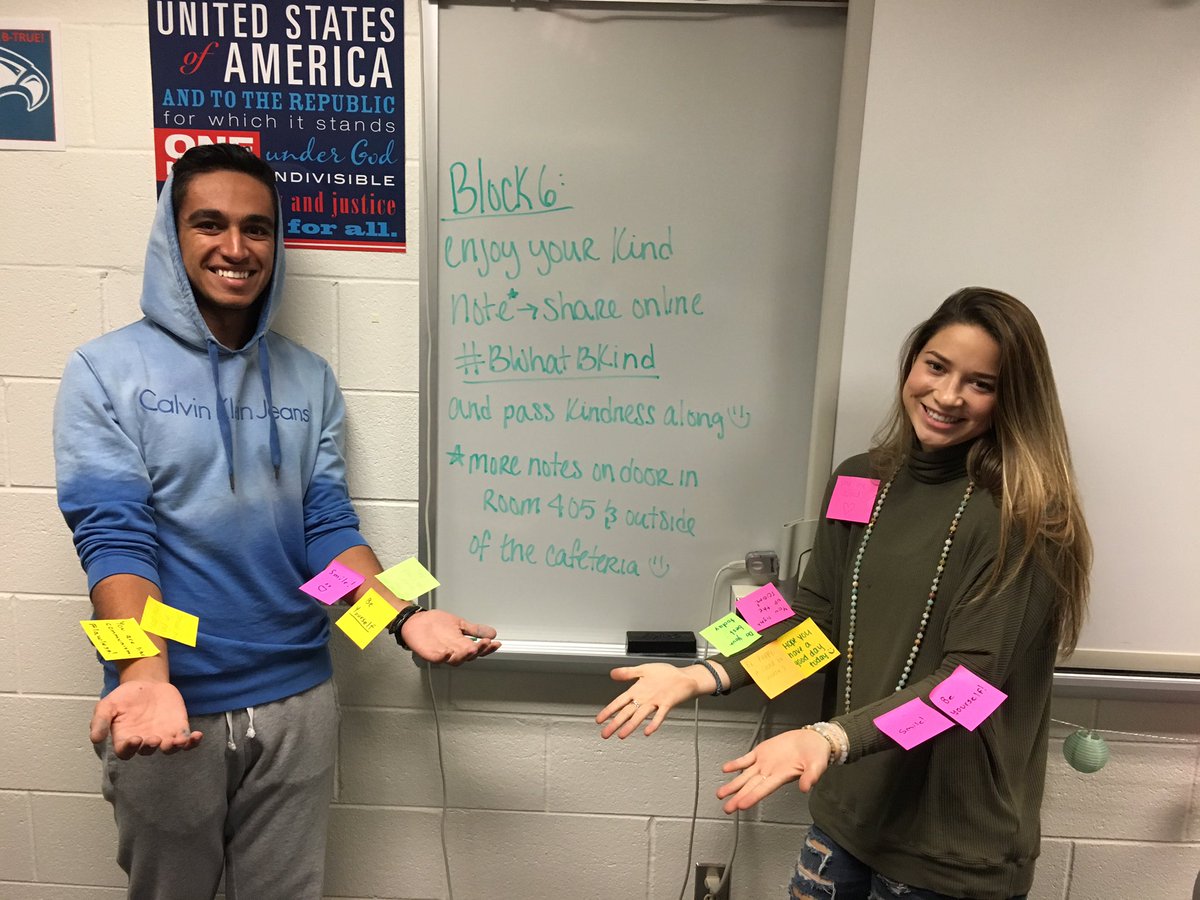 B-TRUE!
UNITED STATES
of AMERICA
AND TO THE REPUBLIC
for which it stands
ONE under God
INDIVISIBLE
and justice
for all.
Block 6:
enjoy your kind
note* → share online
#BWhatBKind
and pass kindness along
*more notes on door in
Room 405 & outside
of the cafeteria
Calvin Klein Jeans
Smile!
Be
Yourself
You are
Flawless!
Do your
best
today
Hope you
have a
good day
today
Smile!
Be
Yourself!